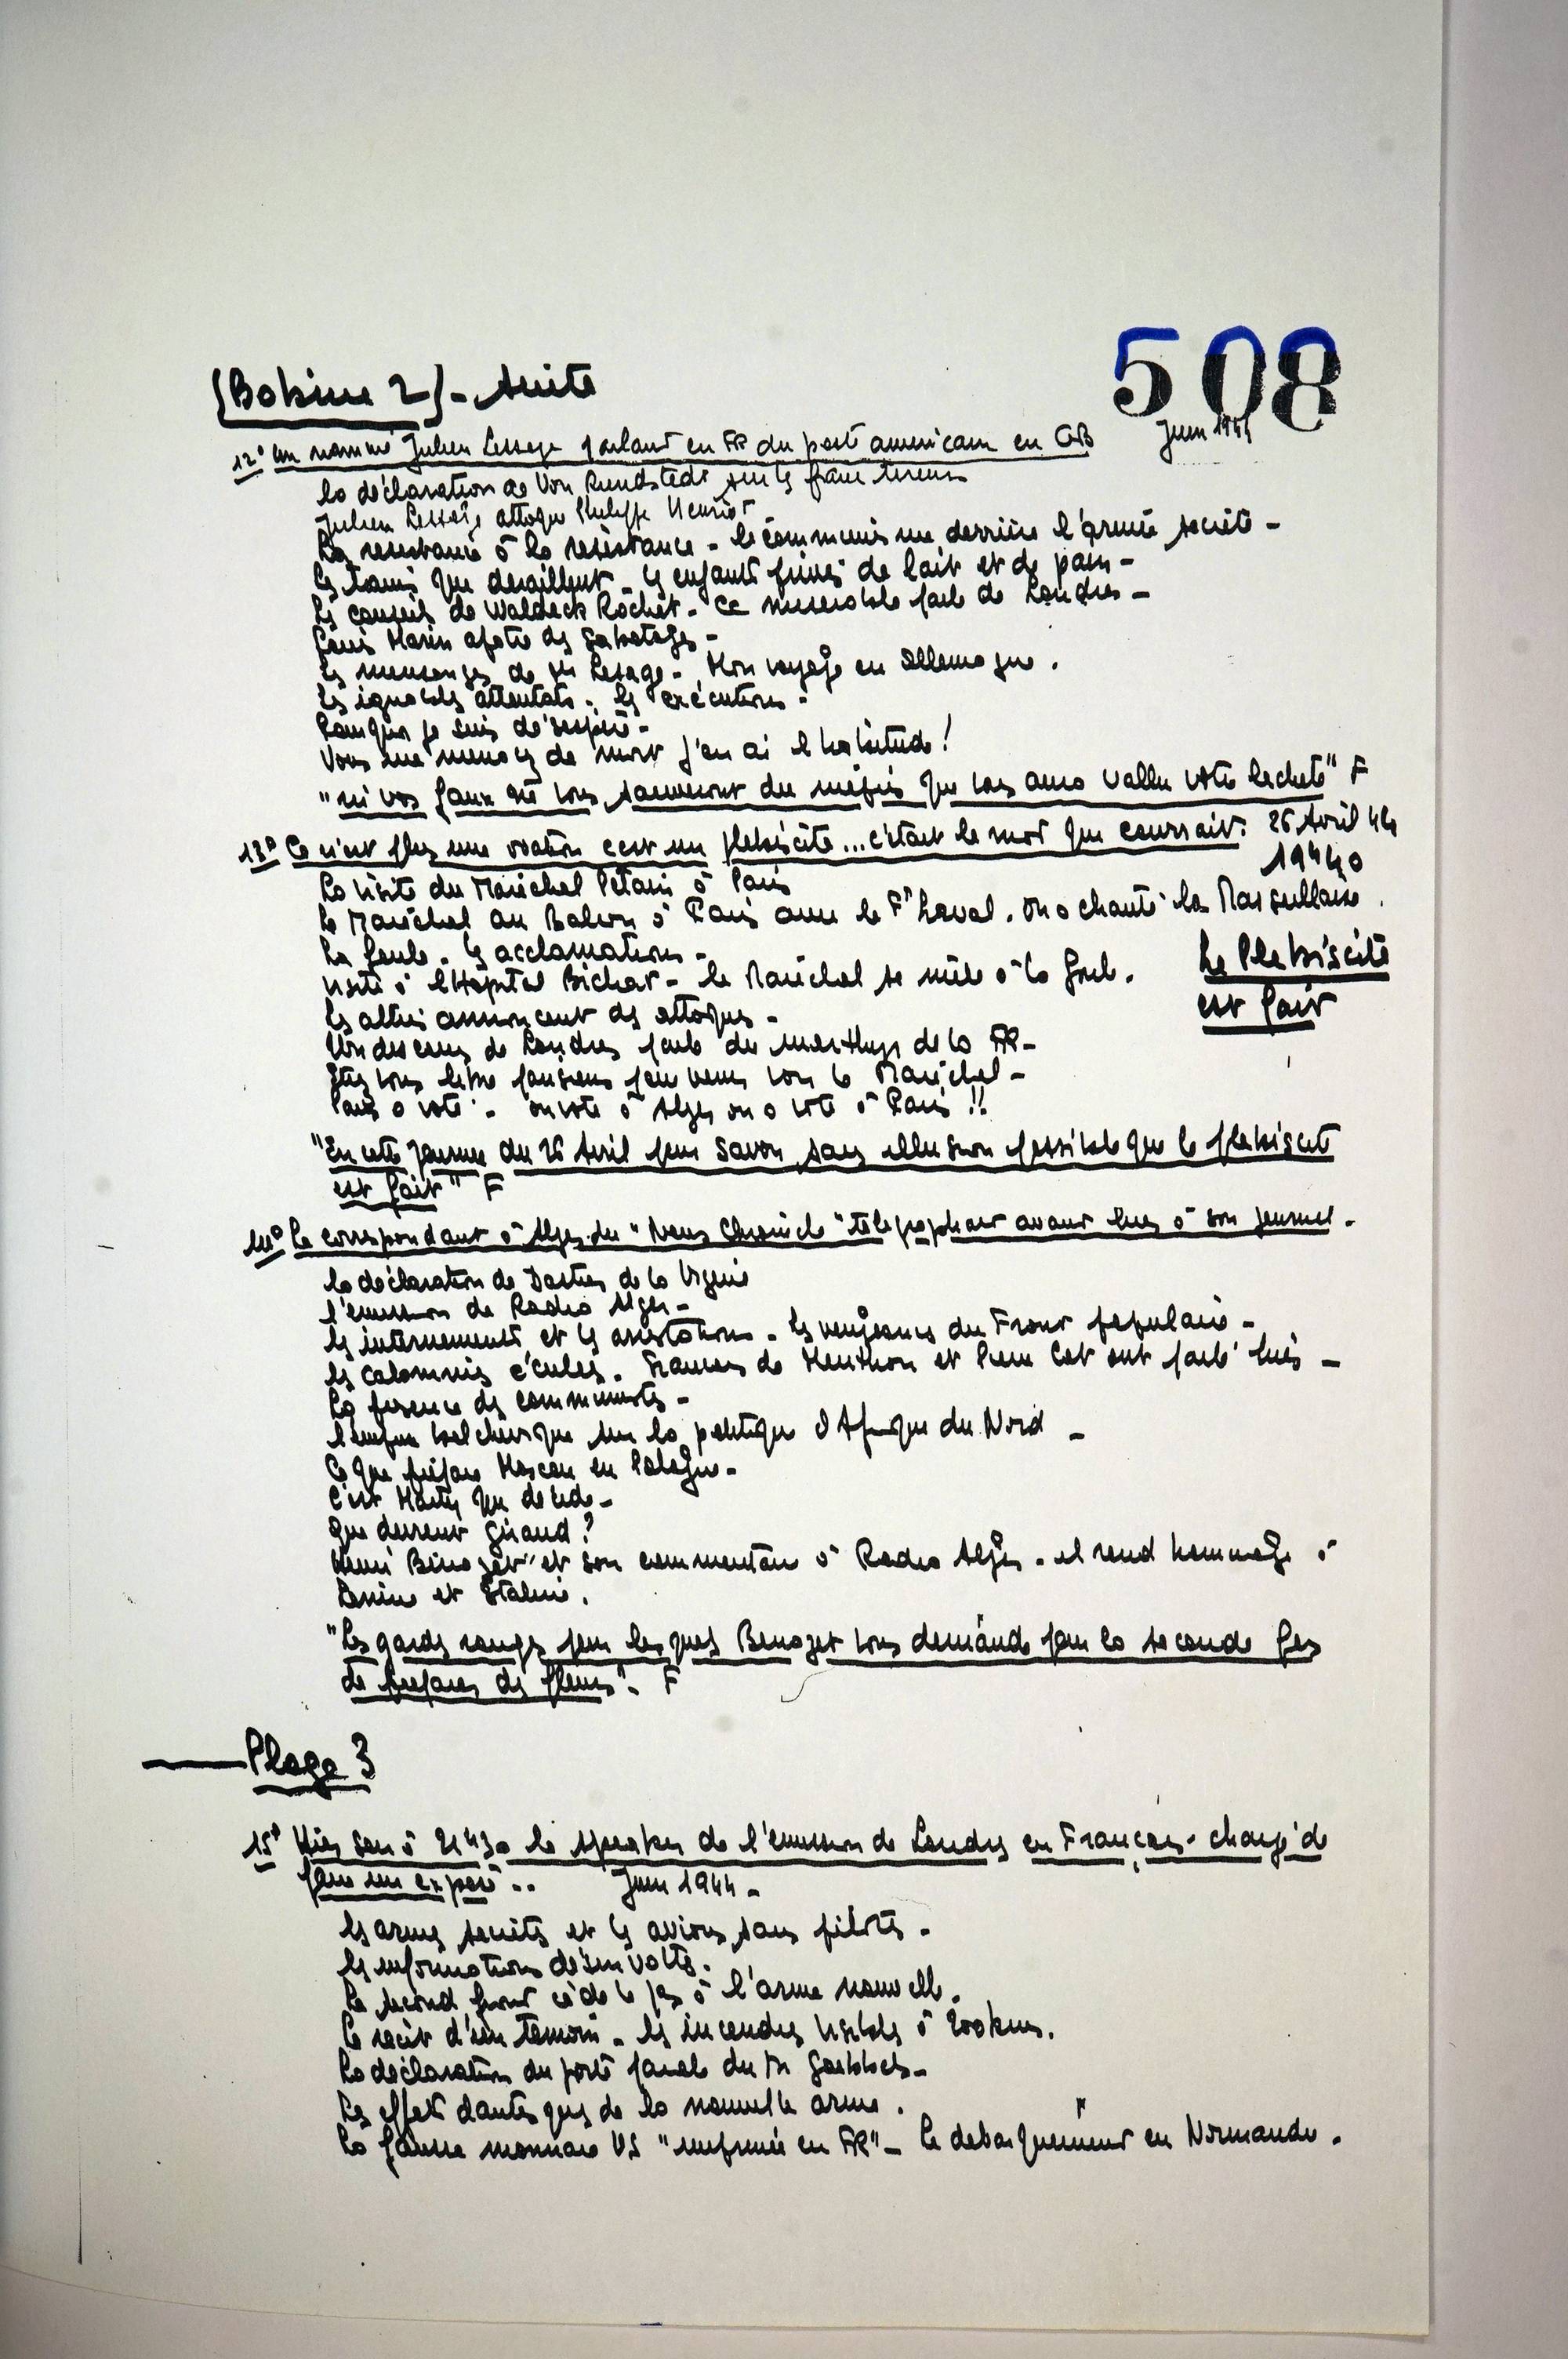 508
(Bobine 2) - suite
Juin 1944
12° un nommé Julien Lessage parlant en FR du poste americain en GB
la déclaration de Von Rundstedt sur les franc tireurs
Julien Lessage attaque Philippe Henriot -
La resistance à la resistance - le communisme derrière l'armée secrète -
les trains qui deraillent - les enfants privés de lait et de pain -
les conseils de Waldeck Rochet - ce miserable parle de Londres -
Louis Marin apotre des sabotages -
les mensonges de Mr Lesage - Mon voyage en Allemagne .
les ignobles attentats - les exécutions -
Pourquoi je suis désespéré -
Vous me menacez de mort j'en ai l'habitude !
"ni vos vous du mépris que vous aura vallu votre lacheté" F
13° Ce n'est plus une ovation c'est un plebiscite ... c'était le mot qui courrait. 26 Avril 44
19h40
la visite du Maréchal Pétain à Paris
le Maréchal au Balcon à Paris avec le Pt Laval . on a chanté la Marseillaise .
la foule - les acclamations -
visite à l'Hopital Bichat - le Maréchal se mêle à la foule .
Le Plebiscite
est fait
les alliés annoncent des attaques -
de Londres parle du martyr de la FR -
êtes vous libre parisiens pour venir voir le Maréchal -
Paris a voté - on vote à Alger on a voté à Paris !!
"En cette journée du 26 Avril pour savoir sans illusion possible que le plebiscite
est fait" F
14° le correspondant à Alger du "News Chronicle" télégraphiait avant hier à son journal -
la déclaration de Dastier de la Vigerie
l'emission de Radio Alger -
les internements et les arrestations - les vengeances du Front populaire -
les calomnies éculées - Francois de Menthon et Pierre Cot ont parlé hier -
la presence des communistes -
l'emprise bolchevique sur la politique d'Afrique du Nord -
Ce que prépare Moscou en Pologne -
c'est Marty qui décide -
que devient Giraud ?
Henri Bénazet et son commentaire à Radio Alger - il rend hommage à
Lenine et Staline .
"les gardes rouges pour lesquels Benazet vous demande pour la seconde fois
de preparer des fleurs" - F
Plage 3
15° Hier soir à 21h30 le speaker de l'emission de Londres en Français - chargé de
faire un exposé .. Juin 1944 -
les armes secretes et les avions sans pilotes -
les informations désinvoltes .
le second front cède le pas à l'arme nouvelle .
le récit d'un témoin - les incendies visibles à 200 kms .
la déclaration du porte parole du Dr Goebbels -
les effets dantesques de la nouvelle arme .
la fausse monnaie US "imprimée en FR" - le debarquement en Normandie .